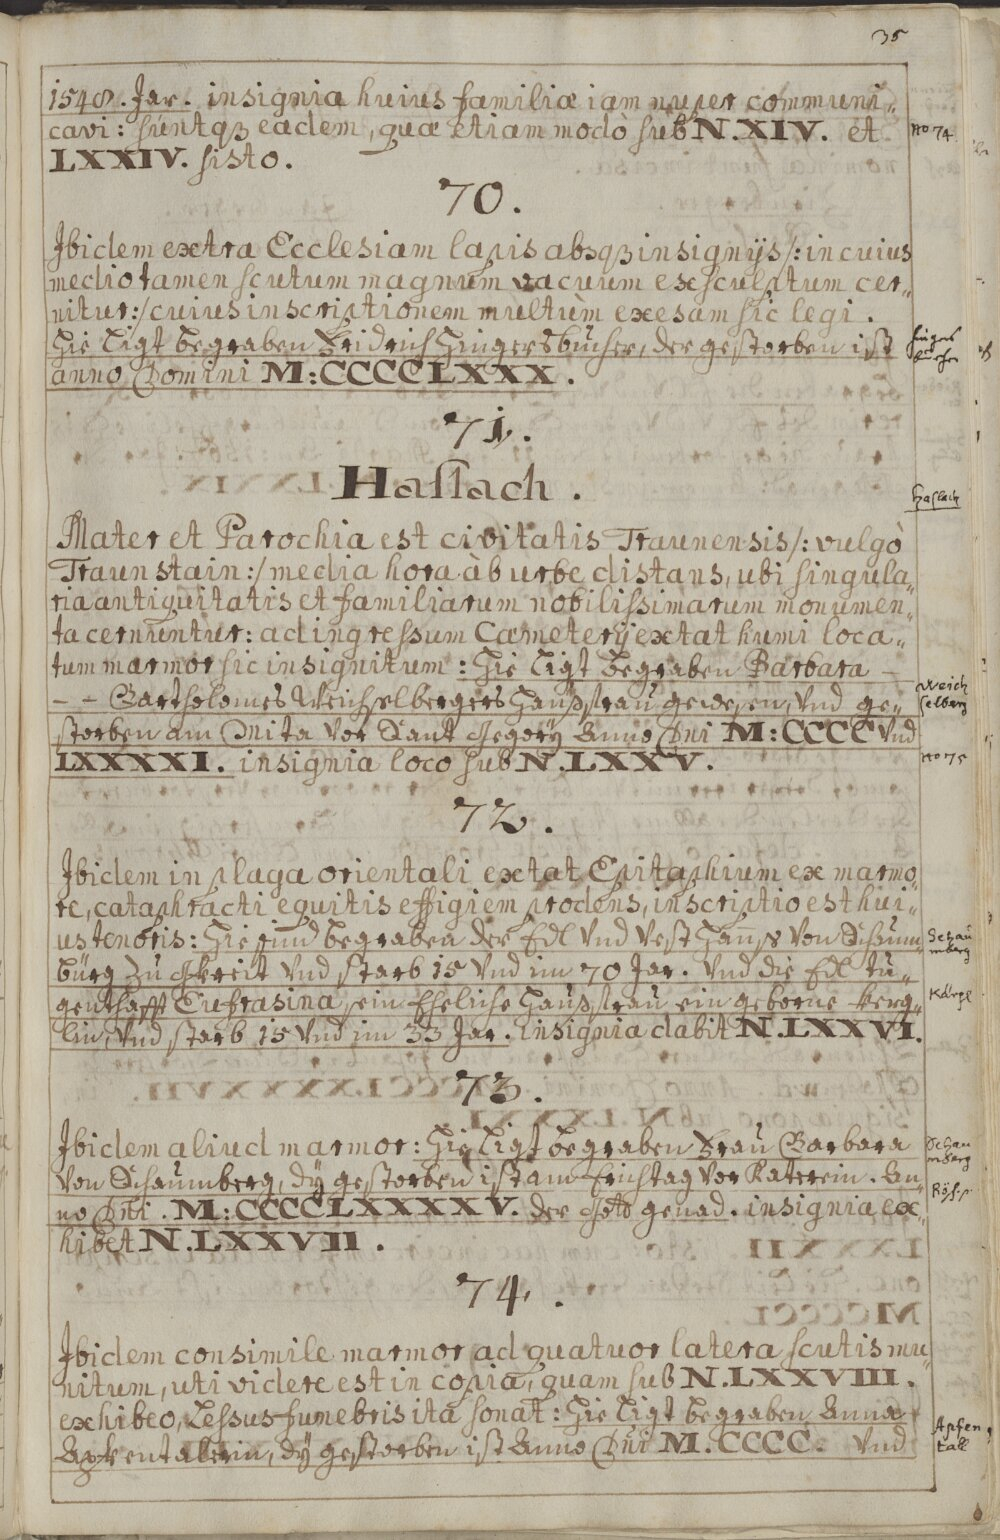 35
1548. Jar. insignia huius familiæ iam nuper communi„
cavi: suntqz eadem, quæ etiam modò sub N. XIV. et
No 74.
LXXIV. sisto.
70.
Ibidem extra Ecclesiam lapis absqz insignÿs /: in cuius
medio tamen scutum magnum vacuum exsculptum cer„
nitur :/ cuius inscriptionem multùm exesam sic legi.
Hie Ligt begraben Fridrich Hingersbucher, der gestorben ist
Hingers
bucher
anno Domini M: CCCCLXXX.
71.
Haslach.
Haslach
Mater et Parochia est civitatis Traunensis /: vulgò
Traunstain :/ media hora ab urbe distans, ubi singula„
ria antiquitatis et familiarum nobilissimarum monumen„
ta cernuntur: ad ingressum Cæmeterÿ extat humi loca„
tum marmor sic insignitum: Hie Ligt begraben Barbara –
– – Bartholomes Weichselbergers Haußfrau gewesen, Vnd ge„
Weich
selberg
storben am Mita Vor Sant Gregorÿ Anno Dni M: CCCC Vnd
LXXXXI. insignia loco sub N. LXXV.
No 75
72.
Ibidem in plaga orientali extat Epitaphium ex marmo„
re, cataphracti equitis effigiem prodens, inscriptio est hui„
us tenoris: Hie sind begraben der Edl Vnd Vest Hannß Von Schaum„
Schau
mberg
burg Zu Vnd starb 15 Vnd im 70 Jar. Vnd die Edl tu„
genthafft Eufrasina, sein Eheliche Haußfrau ein geborne Kerg„
Kärgl
lin, Vnd starb 15 Vnd im 33 Jar. insignia dabit N. LXXVI.
73.
Ibidem aliud marmor: Hie Ligt begraben Frau Barbara
Schau
mberg
Von Schaumberg, dÿ gestorben ist am Erichtag Vor Katerein. An„
no Dni. M: CCCCLXXXXV. der Gott genad. insignia ex„
hibet N. LXXVII.
74.
Ibidem consimile marmor ad quatuor latera scutis mu„
nitum, uti videre est in copia, quam sub N. LXXVIII.
exhibeo, Lessus funebris ita sonat: Hie Ligt begraben Anna
Apfentalerin, dÿ gestorben ist Anno Dni M. CCCC. Vnd
Apfen„
tall